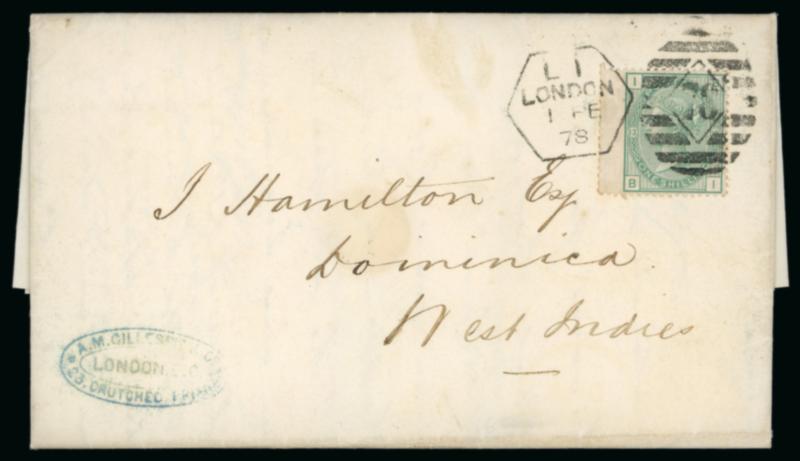 L 1
LONDON
1 FE
78
I
B I
ONE SHILL
J Hamilton Esq
Dominica.
West Indies
A.M. GILLESPIE
LONDON. E.C
23, CRUTCHED FRIARS